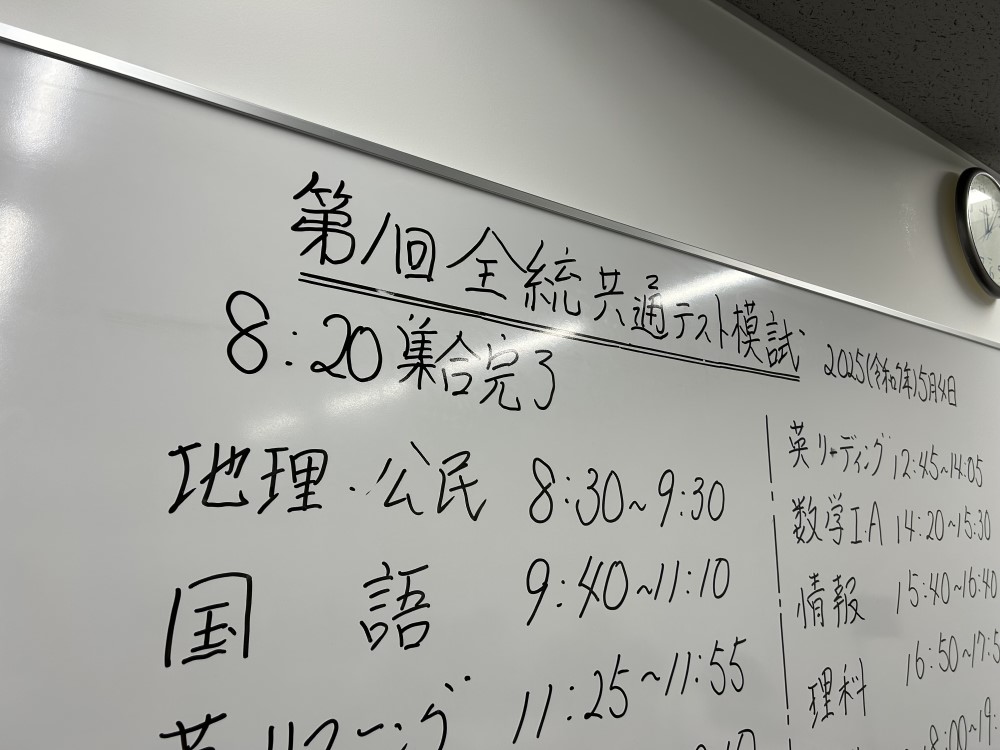 第1回全統共通テスト模試
2025(令和7年)5月4日
8:20集合完了
地理・公民 8:30~9:30
国語 9:40~11:10
11:25~11:55
英リーディング 12:45~14:05
数学I.A 14:20~15:30
情報 15:40~16:40
理科 16:50~17:5